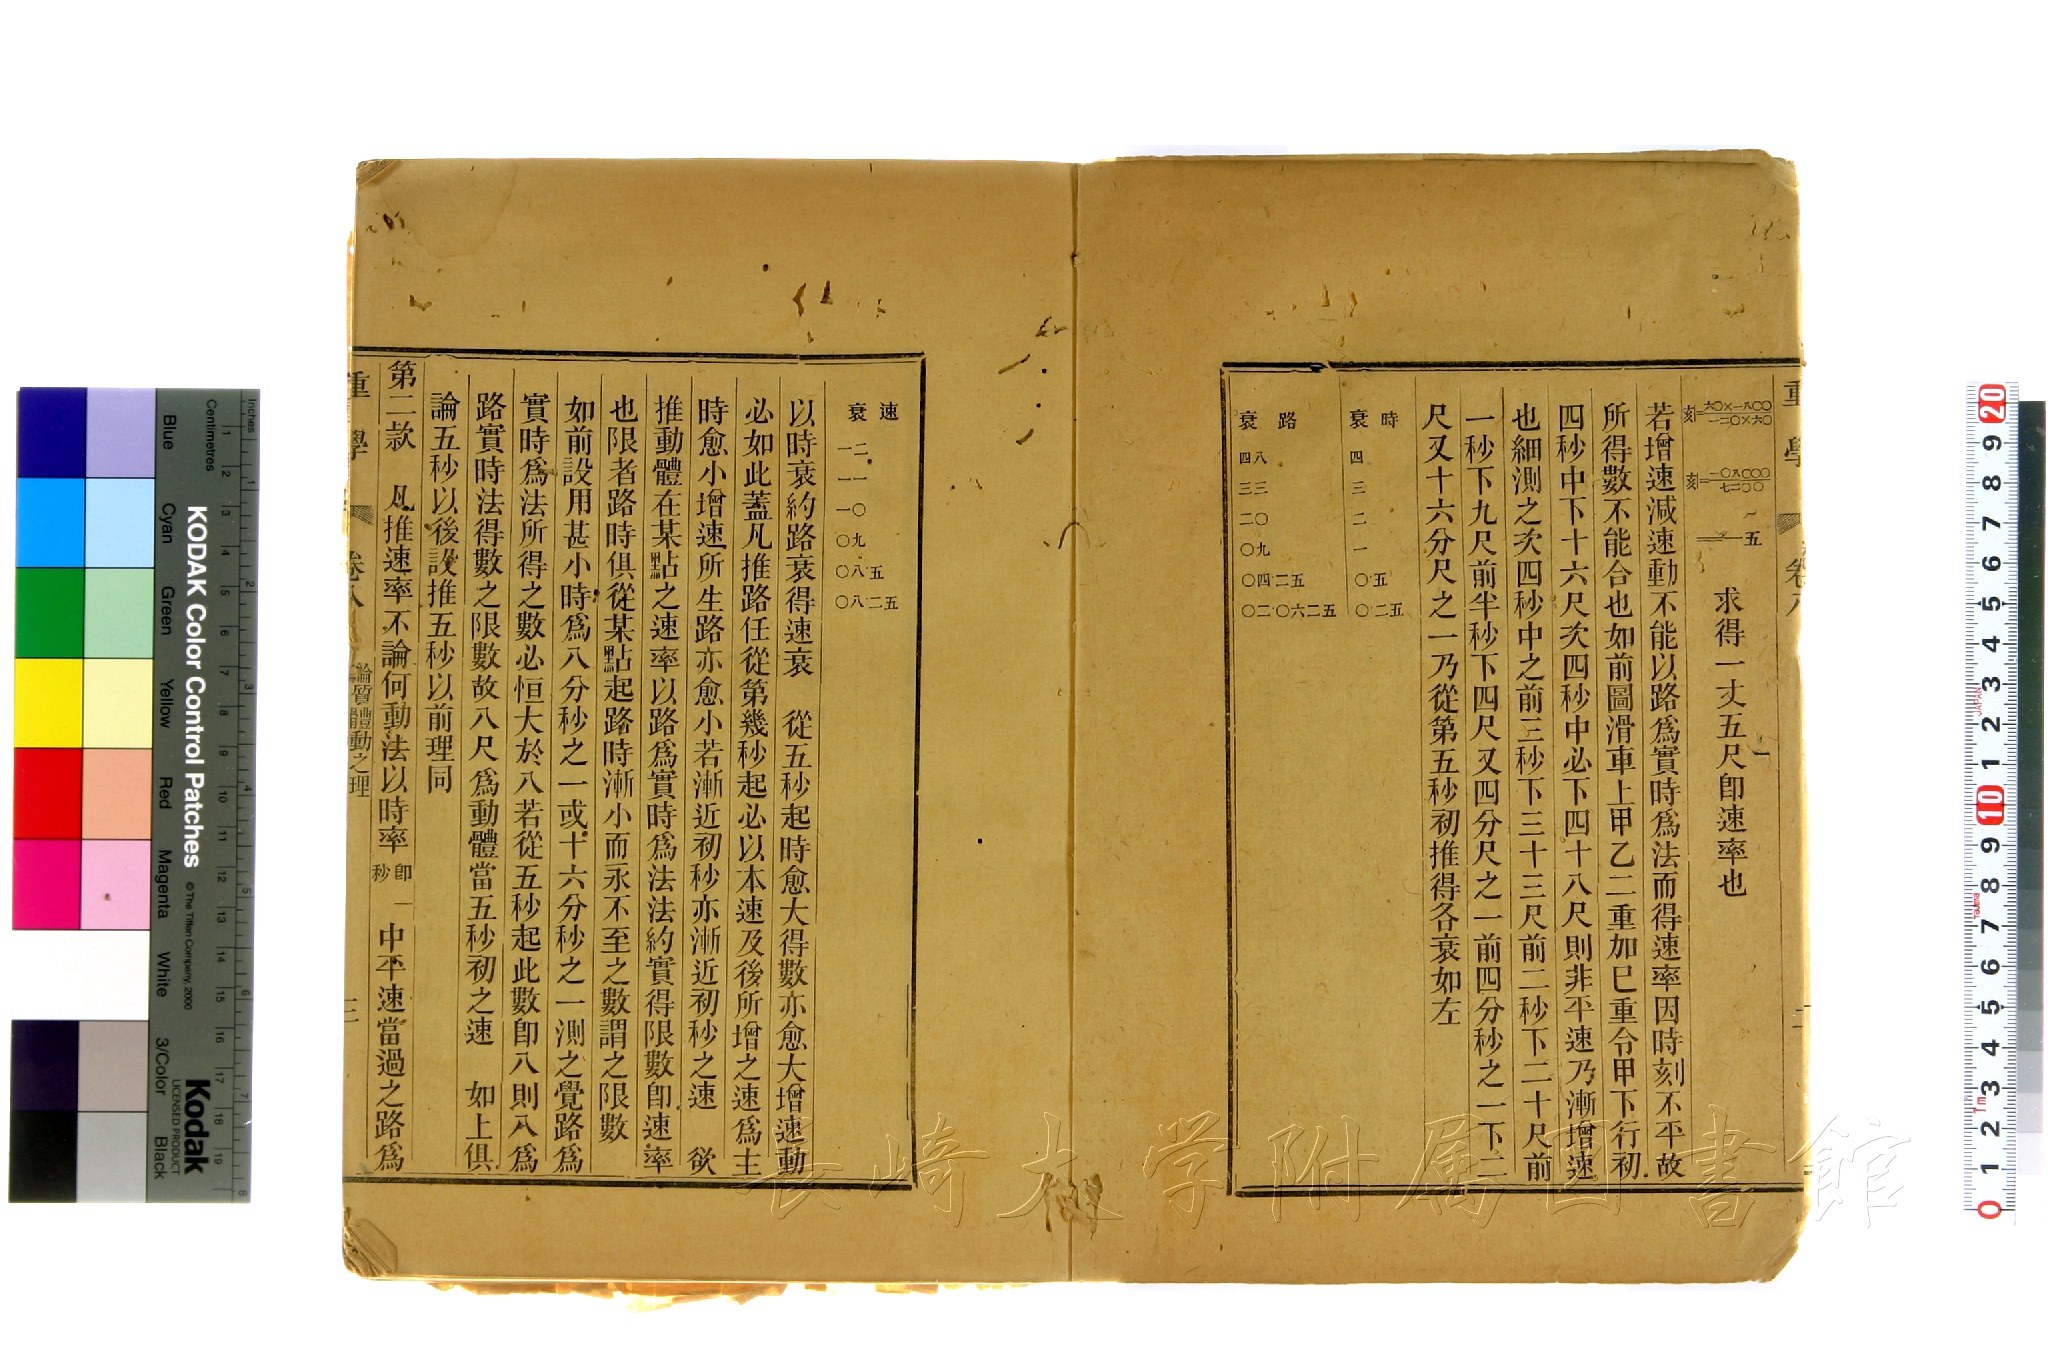 重學 卷八
求得一丈五尺卽速率也
若增速減速動不能以路爲實時爲法而得速率因時刻不平故
所得數不能合也如前圖滑車上甲乙二重加巳重令甲下行初
四秒中下十六尺次四秒中必下四十八尺則非平速乃漸增速
也細測之次四秒中之前三秒下三十三尺前二秒下二十尺前
一秒下九尺前半秒下四尺又四分尺之一前四分秒之一下二
尺又十六分尺之一乃從第五秒初推得各衰如左
時衰 四 三 二 一 〇五 〇二五
路衰 四八 三三 二〇 〇九 〇四二五 〇二〇六二五
速衰 一二 一一 一〇 〇九 〇八五 〇八二五
以時衰約路衰得速衰 從五秒起時愈大得數亦愈大增速動
必如此蓋凡推路任從第幾秒起必以本速及後所增之速爲主
時愈小增速所生路亦愈小若漸近初秒亦漸近初秒之速 欲
推動體在某點之速率以路爲實時爲法法約實得限數卽速率
也限者路時俱從某點起路時漸小而永不至之數謂之限數
如前設用甚小時爲八分秒之一或十六分秒之一測之覺路爲
實時爲法所得之數必恒大於八若從五秒起此數卽八則八爲
路實時法得數之限數故八尺爲動體當五秒初之速 如上俱
論五秒以後設推五秒以前理同
第二款 凡推速率不論何動法以時率卽秒一中平速當過之路爲
重學 卷八 論質體動之理 三
長崎大学附属図書館
KODAK Color Control Patches
© The Tiffen Company, 2000
Kodak
LICENSED PRODUCT
Inches
Centimetres
Blue
Cyan
Green
Yellow
Red
Magenta
White
3/Color
Black
JAPAN